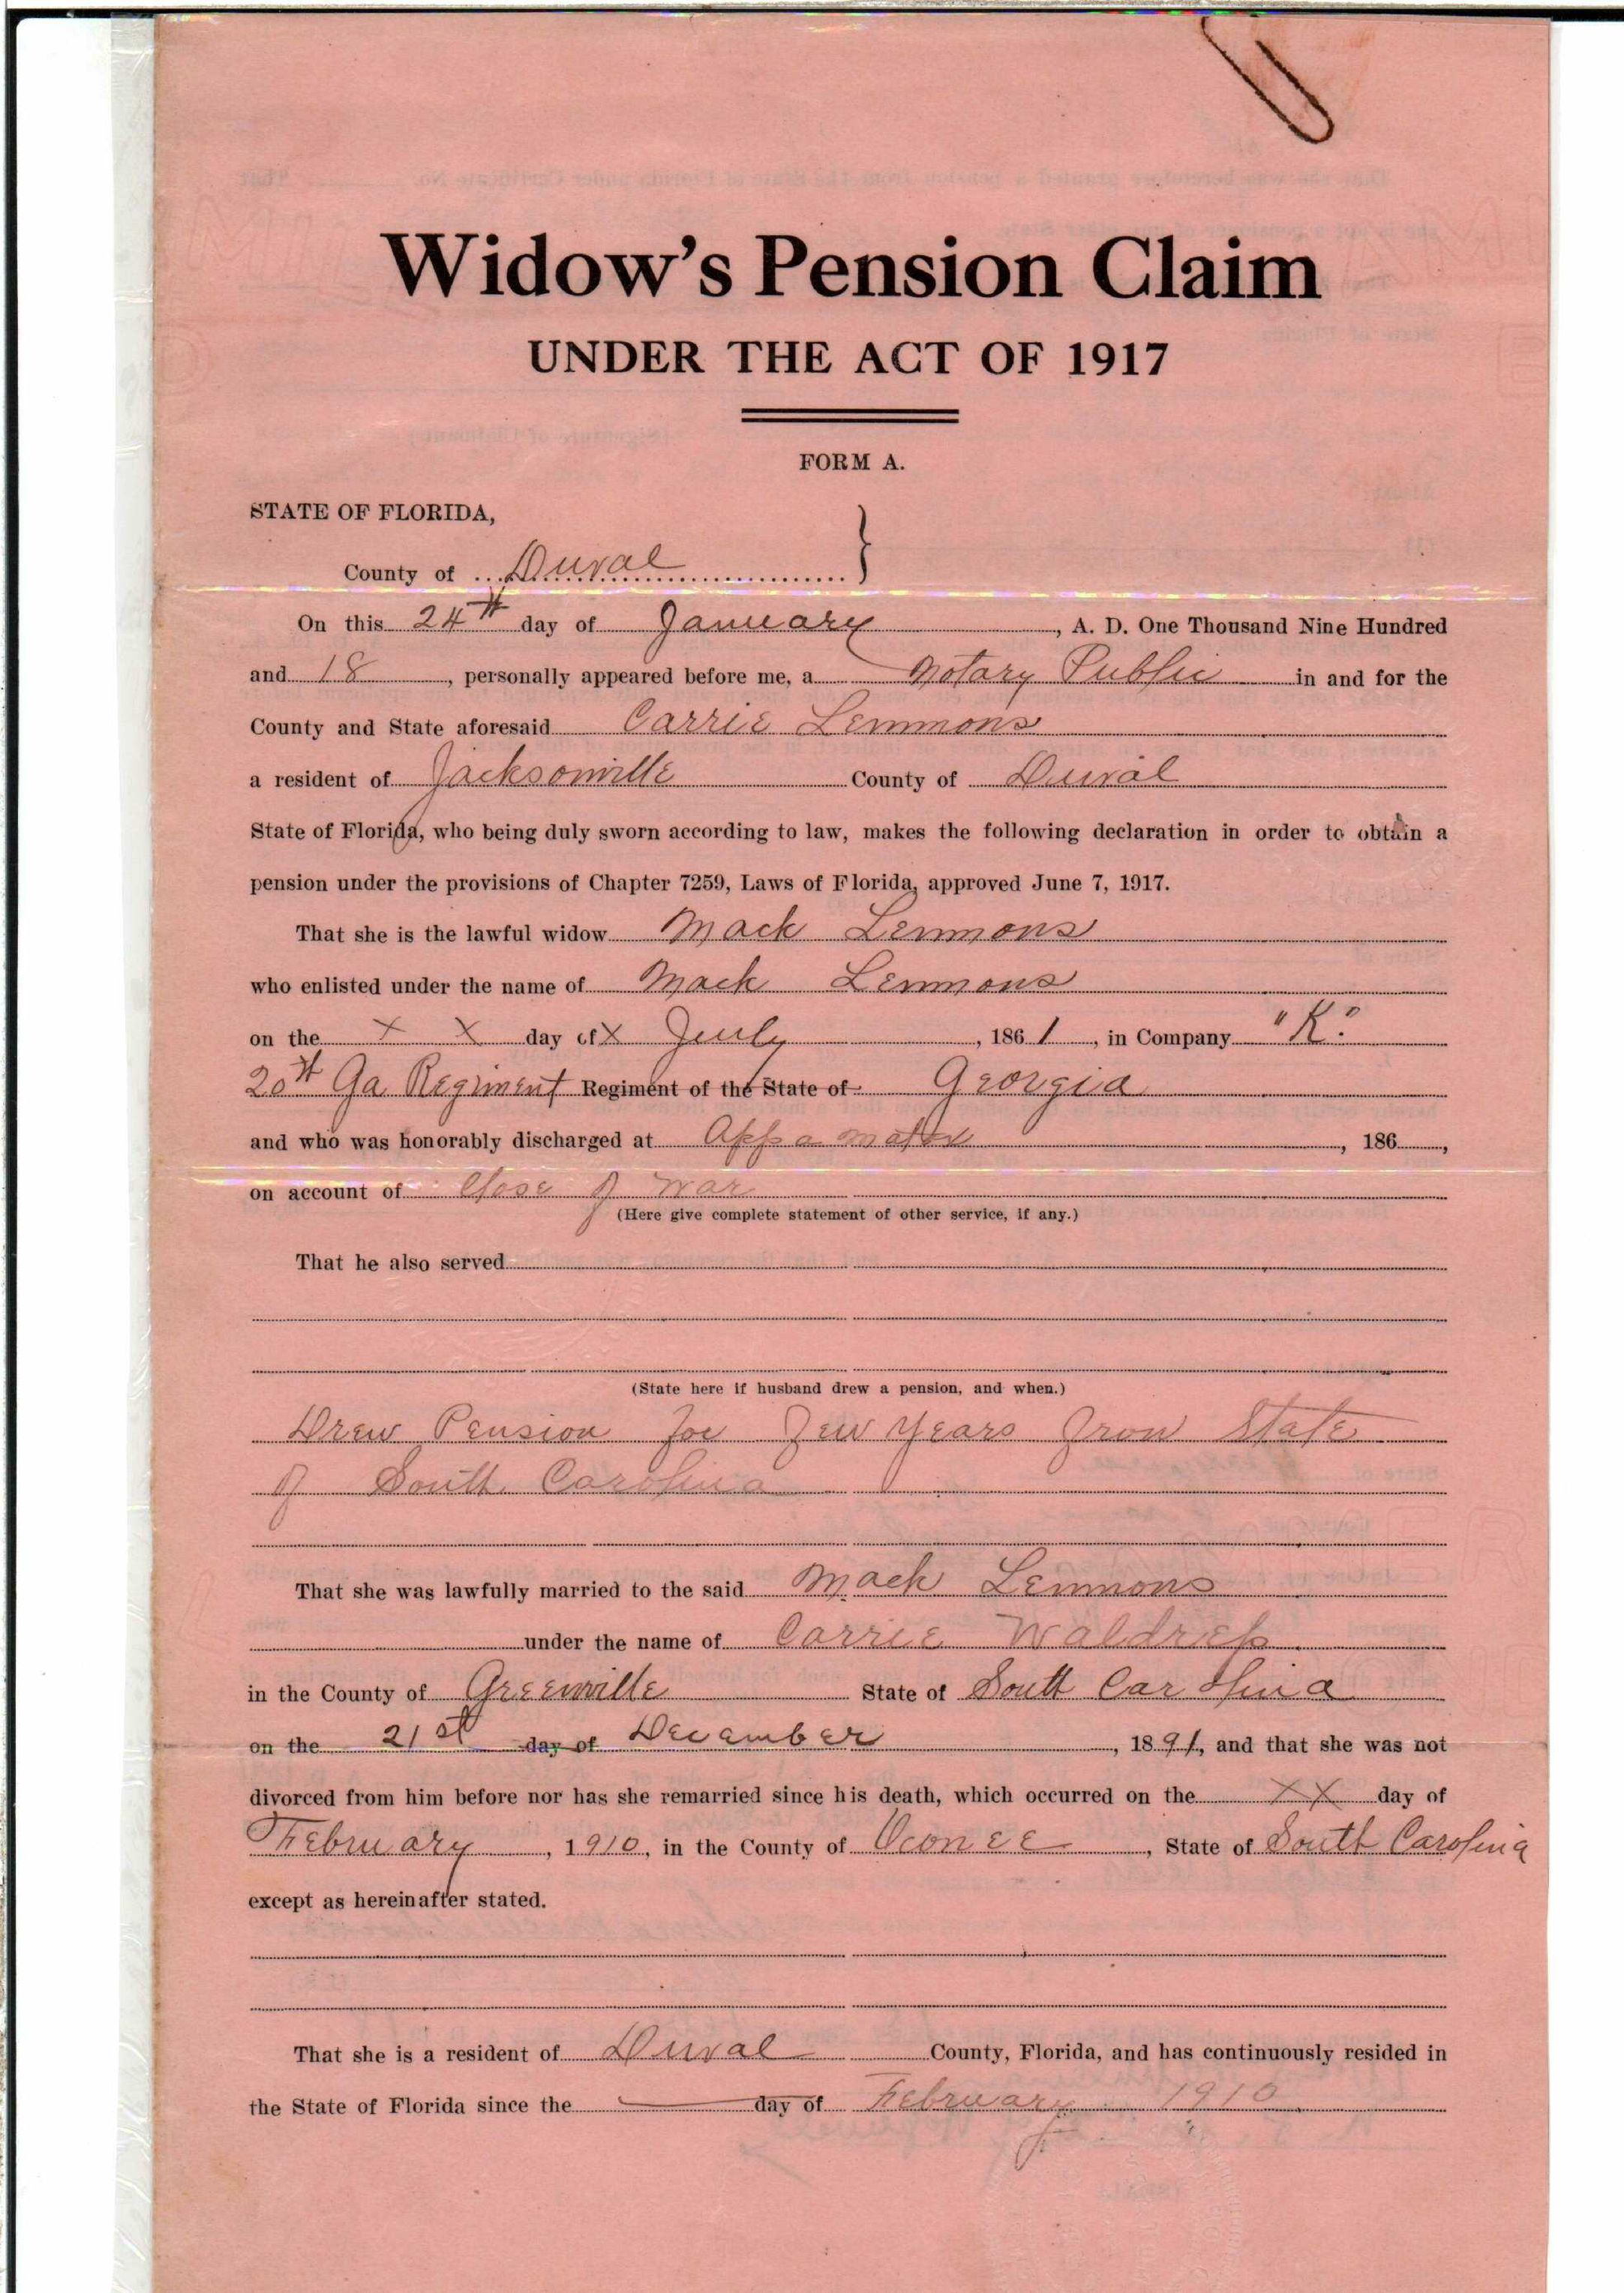 Widow's Pension Claim
UNDER THE ACT OF 1917
FORM A.
STATE OF FLORIDA,
County of Duval }
On this 24th day of January, A. D. One Thousand Nine Hundred
and 18, personally appeared before me, a Notary Public in and for the
County and State aforesaid Carrie Lemmons
a resident of Jacksonville County of Duval
State of Florida, who being duly sworn according to law, makes the following declaration in order to obtain a
pension under the provisions of Chapter 7259, Laws of Florida, approved June 7, 1917.
That she is the lawful widow Mack Lemmons
who enlisted under the name of Mack Lemmons
on the X X day of X July, 1861, in Company "K"
20th Ga Regiment Regiment of the State of Georgia
and who was honorably discharged at Appamatox, 186,
on account of Close of War
(Here give complete statement of other service, if any.)
That he also served
(State here if husband drew a pension, and when.)
Drew Pension for few years from State
of South Carolina
That she was lawfully married to the said Mack Lemmons
under the name of Carrie Waldrep
in the County of Greenville State of South Carolina
on the 21st day of December, 1891, and that she was not
divorced from him before nor has she remarried since his death, which occurred on the XX day of
February, 1910, in the County of Oconee, State of South Carolina
except as hereinafter stated.
That she is a resident of Duval County, Florida, and has continuously resided in
the State of Florida since the — day of February 1910